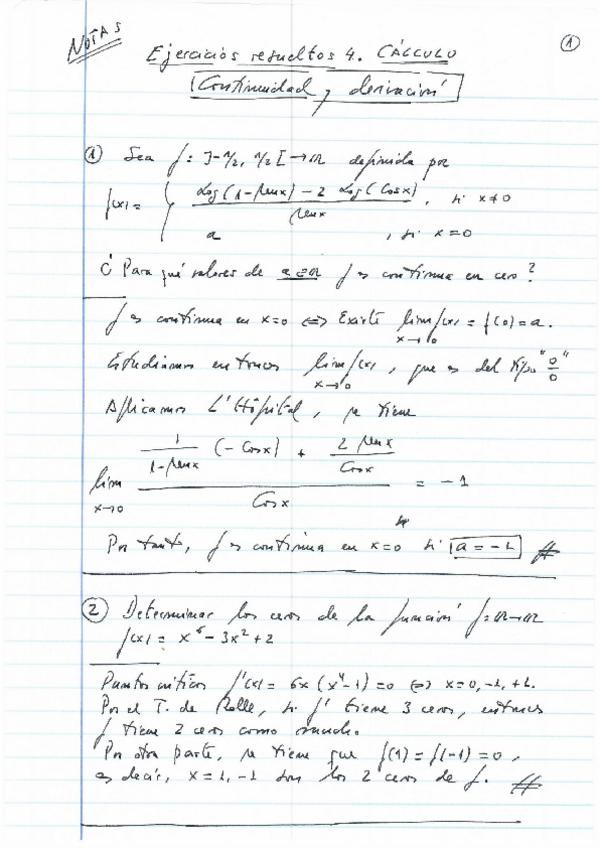 NOTAS
Ejercicios resueltos 4. CÁLCULO
①
Continuidad y derivación
① Sea f: ]-π/2, π/2[ → R definida por
f(x) = { (Log(1-senx) - 2 Log(Cosx)) / senx , si x≠0
a , si x=0
¿ Para qué valores de a∈R f es continua en cero?
f es continua en x=0 ⇔ Existe lim x→0 f(x) = f(0) = a.
Estudiamos entonces lim x→0 f(x), que es del tipo "0/0"
Aplicamos L'Hôpital, se tiene
lim x→0 (1/(1-senx) (-Cosx) + 2 senx/Cosx) / Cosx = -1
Por tanto, f es continua en x=0 si a = -1 #
② Determinar los ceros de la función f: R→R
f(x) = x⁶ - 3x² + 2
Puntos críticos f'(x) = 6x (x⁴-1) = 0 ⇔ x=0, -1, +1.
Por el T. de Rolle, si f' tiene 3 ceros, entonces
f tiene 2 ceros como mucho.
Por otra parte, se tiene que f(1) = f(-1) = 0,
es decir, x=1, -1 son los 2 ceros de f. #